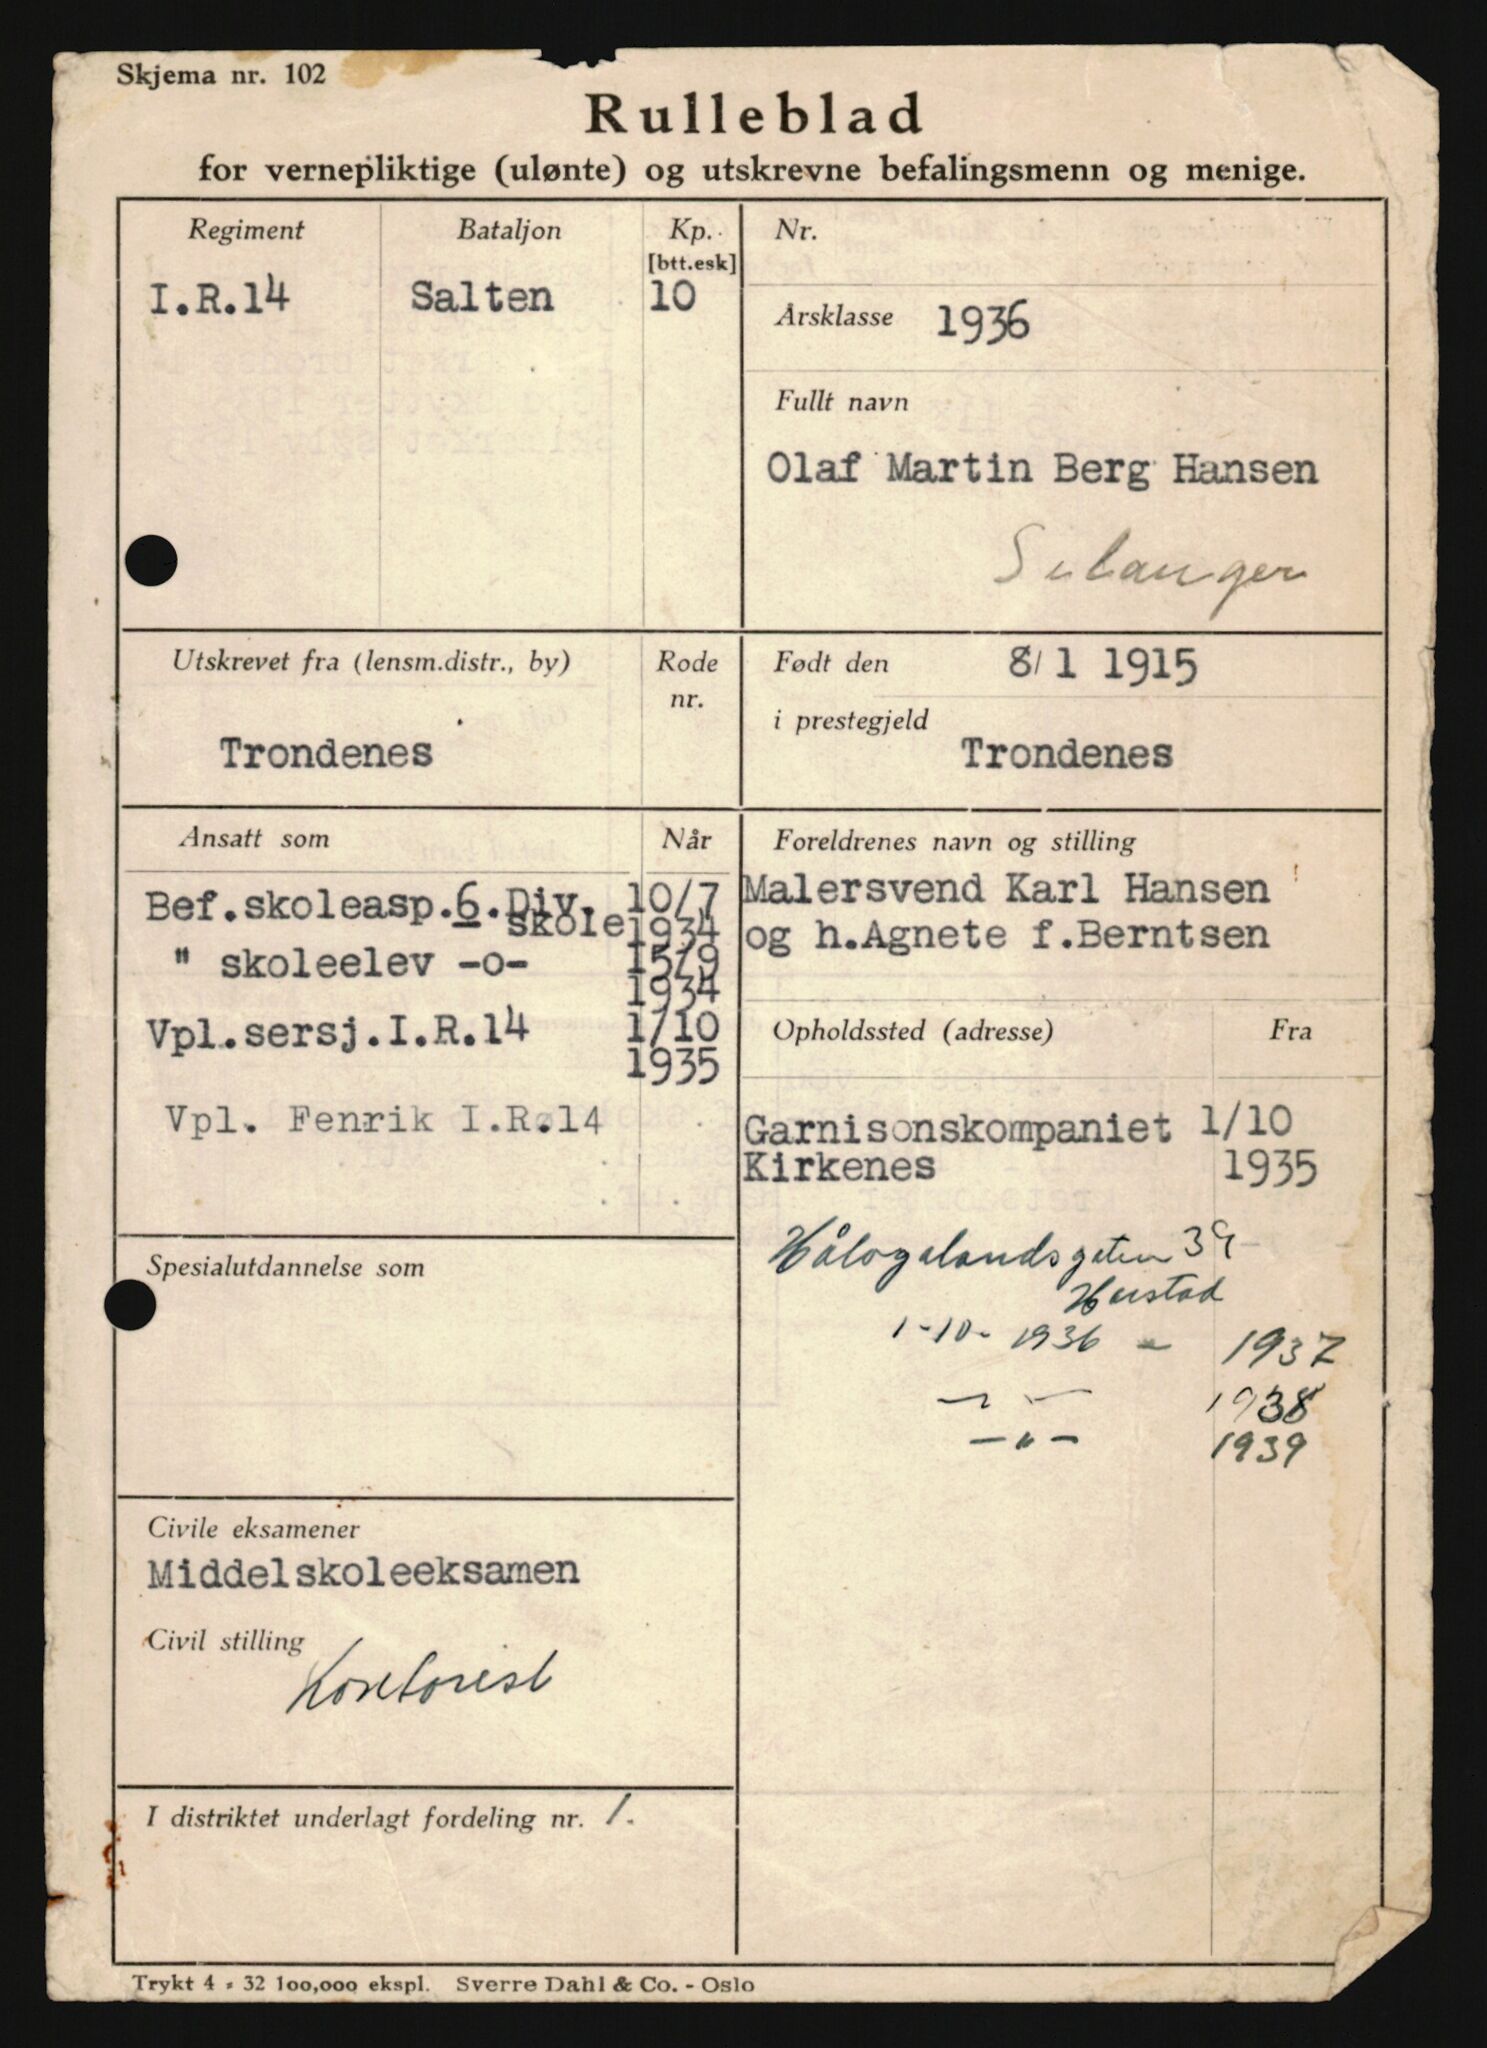 Skjema nr. 102
Rulleblad
for vernepliktige (ulønte) og utskrevne befalingsmenn og menige.
Regiment
Bataljon
Kp.
[btt.esk]
I.R.14
Salten
10
Nr.
Årsklasse 1936
Fullt navn
Olaf Martin Berg Hansen
Utskrevet fra (lensm.distr., by)
Rode
nr.
Trondenes
Født den 8/1 1915
i prestegjeld
Trondenes
Ansatt som
Når
Bef.skoleasp.6.Div. 10/7
skole 1934
" skoleelev -o- 15/9
1934
Vpl.sersj.I.R.14 1/10
1935
Vpl. Fenrik I.R.14
Foreldrenes navn og stilling
Malersvend Karl Hansen
og h.Agnete f.Berntsen
Opholdssted (adresse)
Fra
Garnisonskompaniet 1/10
Kirkenes 1935
Hålogalandsgaten 39
Harstad
1-10-1936 - 1937
1938
-"- 1939
Spesialutdannelse som
Civile eksamener
Middelskoleeksamen
Civil stilling
Kontorist
I distriktet underlagt fordeling nr. 1.
Trykt 4 - 32 100,000 ekspl. Sverre Dahl & Co. - Oslo